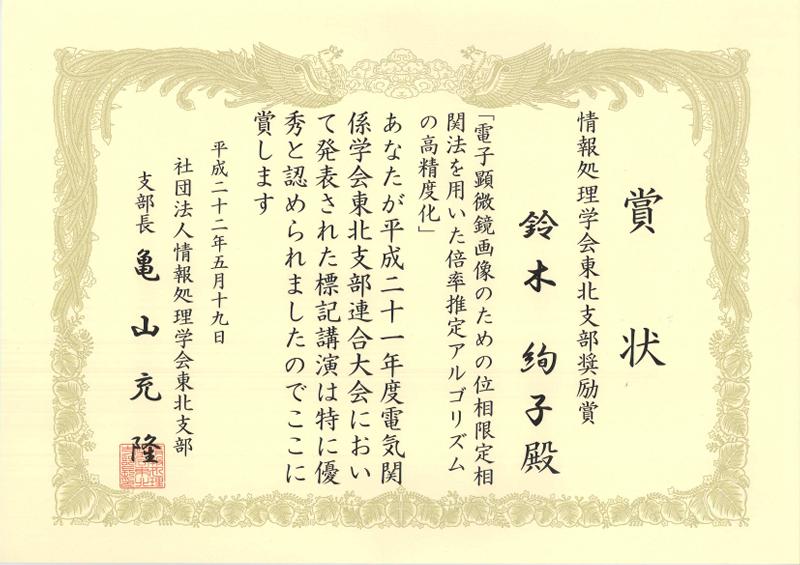 賞状
情報処理学会東北支部奨励賞
鈴木絢子殿
「電子顕微鏡画像のための位相限定相
関法を用いた倍率推定アルゴリズム
の高精度化」
あなたが平成二十一年度電気関
係学会東北支部連合大会におい
て発表された標記講演は特に優
秀と認められましたのでここに
賞します
平成二十二年五月十九日
社団法人情報処理学会東北支部
支部長 亀山充隆